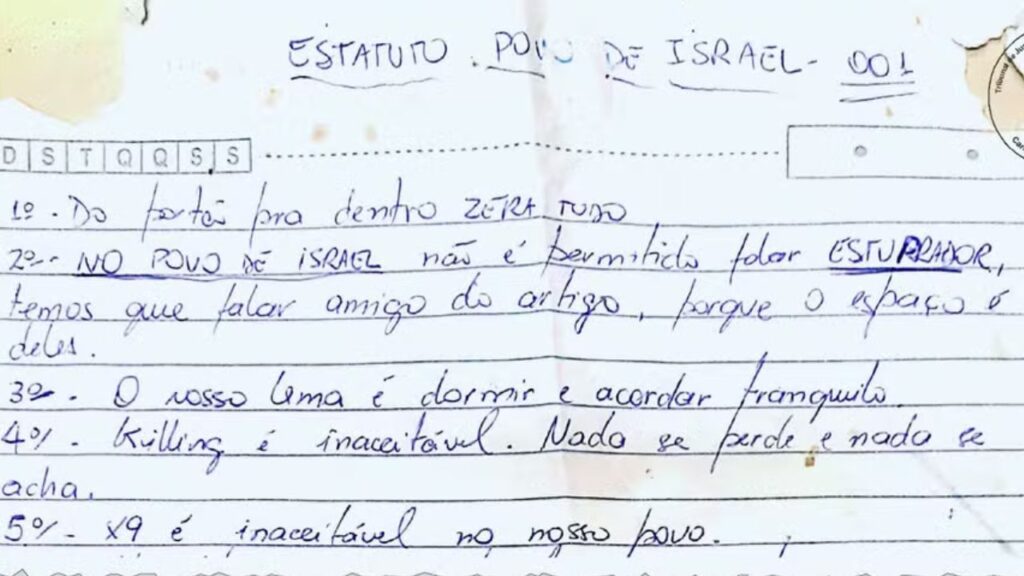 ESTATUTO. POVO DE ISRAEL- 001
D S T Q Q S S
1º - Do portão pra dentro ZERA TUDO
2º - NO POVO DE ISRAEL não é permitido falar ESTUPRADOR,
temos que falar amigo do artigo, porque o espaço é
deles.
3º - O nosso lema é dormir e acordar tranquilo.
4º - Killing é inaceitável. Nada se perde e nada se
acha.
5º - X9 é inaceitável no nosso povo.